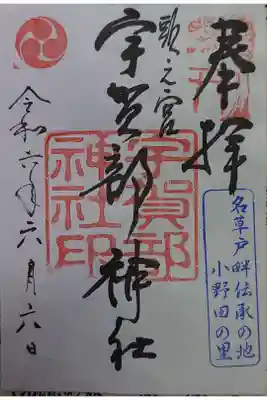 奉拝
頭之宮
宇賀部神社
宇賀部
神社印
令和六年六月六日
名草戸畔伝承の地
小野田の里